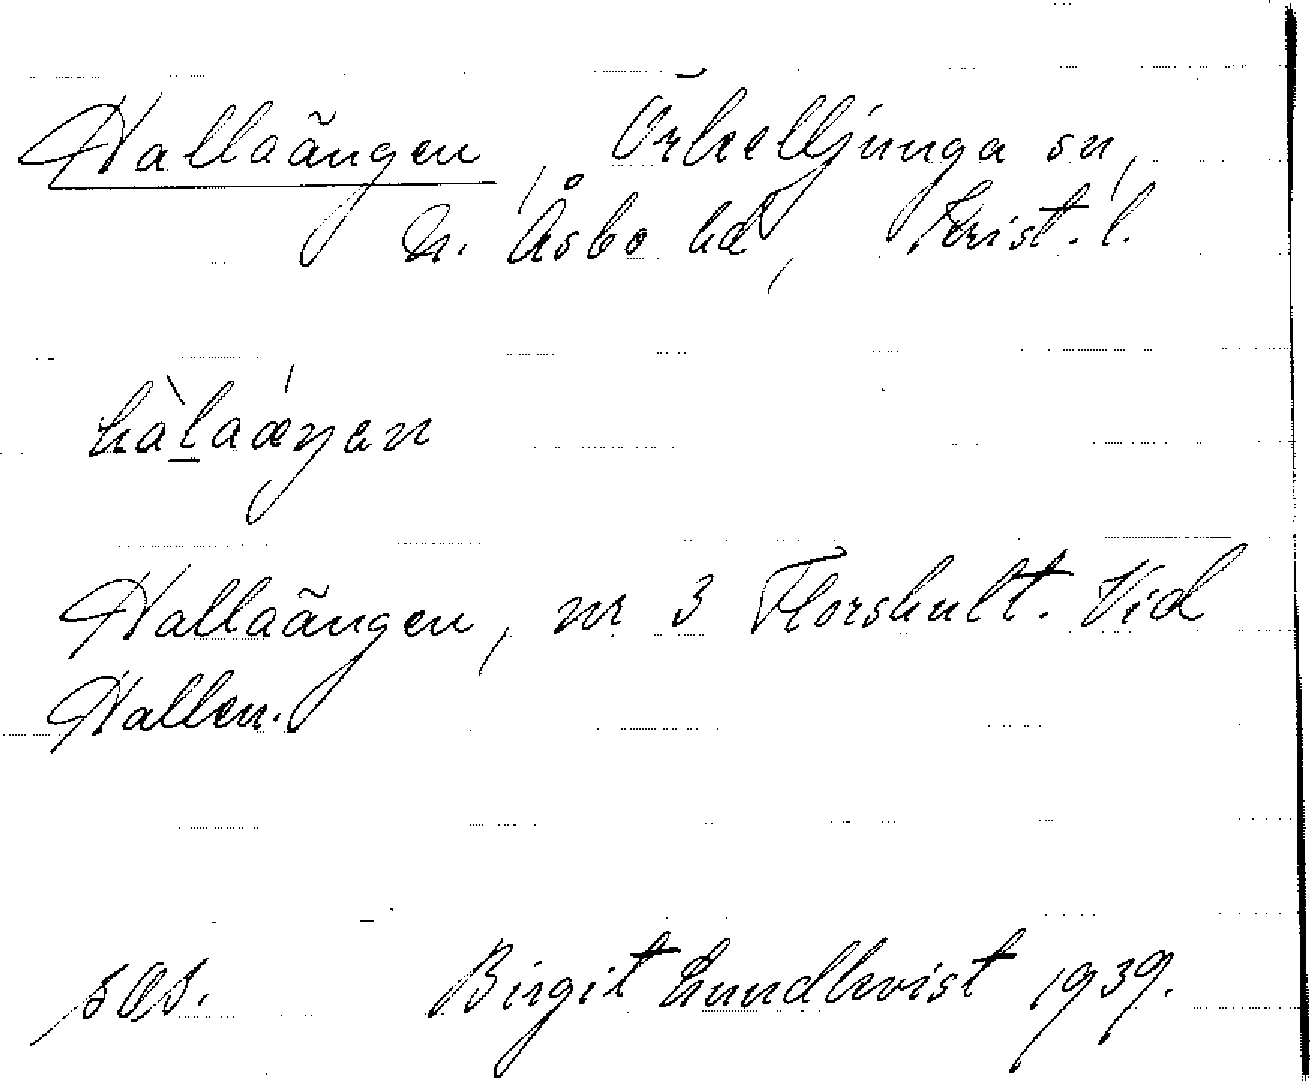 Hallaängen, Örkelljunga sn,
N. Åsbo hd, Krist. l.
hàlaǽŋen
Hallaängen, nr 3 Florshult. Vid
Hallen.
Birgit Lundkvist 1939.